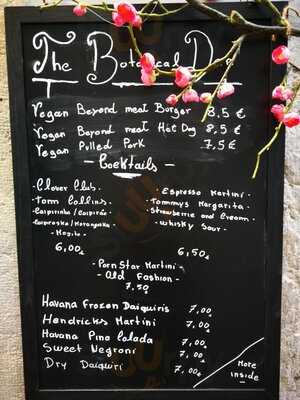 The Botanical D
Vegan Beyond meat Burger 8,5 €
Vegan Beyond meat Hot Dog 8,5 €
Vegan Pulled Pork 7,5 €
- Cocktails -
· Clover Club ·
· Tom Collins ·
· Caipirinha / Caipirão ·
· Mojito ·
6,00€
· Espresso Martini ·
· Tommys Margarita ·
· Strawberrie and Cream ·
· Whisky Sour ·
6,50€
· Porn Star Martini ·
- Old Fashion -
7,50€
Havana Frozen Daiquiris 7,00€
Hendricks Martini 7,00€
Havana Pina Colada 7,00€
Sweet Negroni 7,00€
Dry Daiquiri 7,00€
More
inside